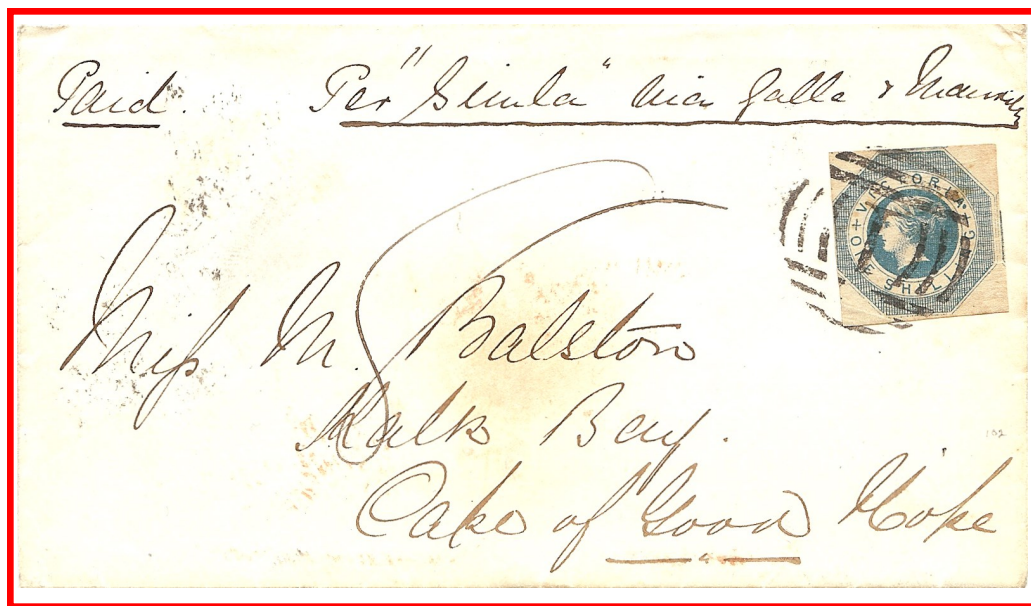 Paid. Per "Simla" via Galle & Mauritius
VICTORIA
ONE SHILLING
Miss M. Balston
Kalk Bay.
Cape of Good Hope
102